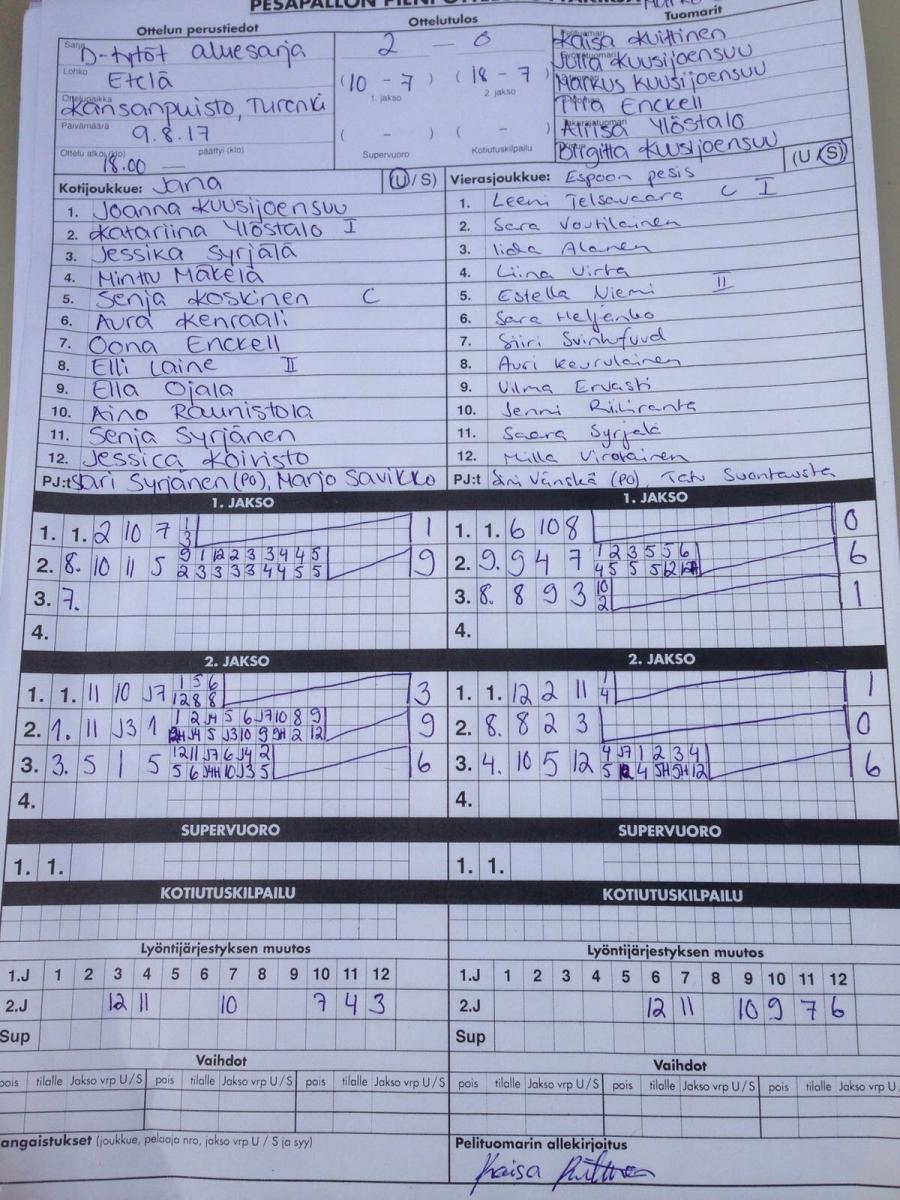 PESÄPALLON PIENI OTTELUPÖYTÄKIRJA
Ottelun perustiedot
Ottelutulos
Tuomarit
Sarja D-tytöt aluesarja
Lohko Etelä
Ottelupaikka Kansanpuisto, Turenki
Päivämäärä 9.8.17
Ottelu alkoi (klo) 18.00 — päättyi (klo)
2 - 0
(10 - 7) (18 - 7)
1. jakso 2. jakso
( - ) ( - )
Supervuoro Kotiutuskilpailu
Kaisa Kuittinen
Jutta Kuusijoensuu
Markus Kuusijoensuu
Tiina Enckell
Alrisa Ylöstalo
Birgitta Kuusijoensuu
Kotijoukkue: Jana (U/S)
1. Joanna Kuusijoensuu
2. Katariina Ylöstalo I
3. Jessika Syrjälä
4. Minttu Mäkelä
5. Senja Koskinen C
6. Aura Kenraali
7. Oona Enckell
8. Elli Laine II
9. Ella Ojala
10. Aino Raunistola
11. Senja Syrjänen
12. Jessica Koivisto
PJ:t Sari Syrjänen (PO), Marjo Savikko
Vierasjoukkue: Espoon pesis (U/S)
1. Leeni Telsavaara C I
2. Sara Voutilainen
3. Iida Alanen
4. Liina Virta
5. Estella Niemi II
6. Sara Heljanko
7. Siiri Svinhufvud
8. Auri Keurulainen
9. Vilma Ervasti
10. Jenni Riihiranta
11. Saara Syrjälä
12. Milla Virolainen
PJ:t Vänskä (PO), Tatu Suontausta
1. JAKSO
1. 1. 2 10 7 1 1
3
2. 8. 10 11 5 9 1 12 2 3 3 4 4 5 9
2 3 3 3 3 4 4 5 5
3. 7.
4.
1. JAKSO
1. 1. 6 10 8 0
2. 9. 9 4 7 1 2 3 5 5 6 6
4 5 5 5 12 12H
3. 8. 8 9 3 10 1
2
4.
2. JAKSO
1. 1. 11 10 J7 1 5 6 3
12 8 8
2. 1. 11 J3 1 1 2 J4 5 6 J7 10 8 9 9
12H J4 5 J3 10 9 9H 2 12
3. 3. 5 1 5 12 11 J7 6 J4 2 6
5 6 J4H 10 J3 5
4.
2. JAKSO
1. 1. 12 2 11 1 1
4
2. 8. 8 2 3 0
3. 4. 10 5 12 4 J7 1 2 3 4 6
5 12 4 5H 5H 12
4.
SUPERVUORO
1. 1.
SUPERVUORO
1. 1.
KOTIUTUSKILPAILU
KOTIUTUSKILPAILU
Lyöntijärjestyksen muutos
1.J 1 2 3 4 5 6 7 8 9 10 11 12
2.J 12 11 10 7 4 3
Sup
Lyöntijärjestyksen muutos
1.J 1 2 3 4 5 6 7 8 9 10 11 12
2.J 12 11 10 9 7 6
Sup
Vaihdot
pois tilalle Jakso vrp U/S pois tilalle Jakso vrp U/S pois tilalle Jakso vrp U/S
Vaihdot
pois tilalle Jakso vrp U/S pois tilalle Jakso vrp U/S pois tilalle Jakso vrp U
angaistukset (joukkue, pelaaja nro, jakso vrp U / S ja syy)
Pelituomarin allekirjoitus
Kaisa Kuittinen